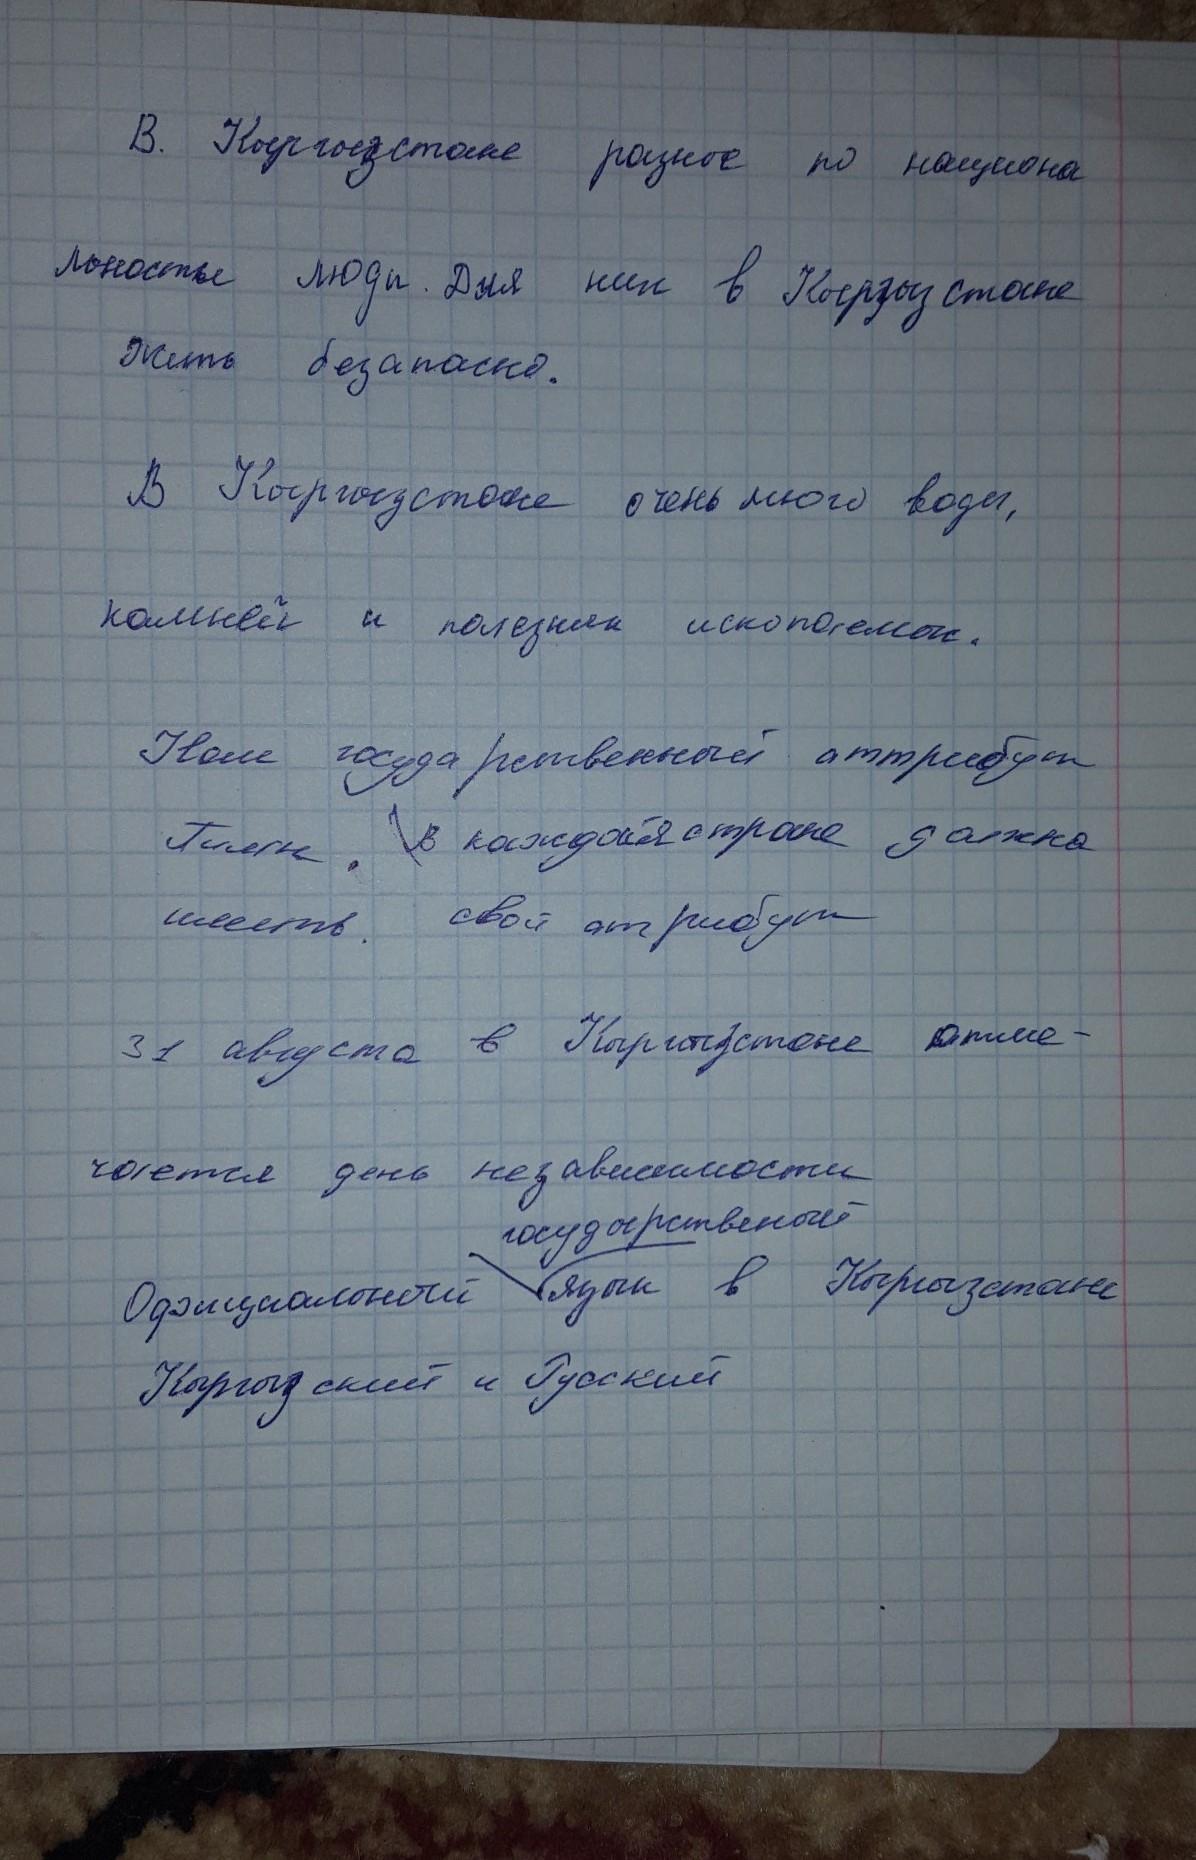 В. Кыргызстане разные по национа
льностье люди. Для них в Кыргызстане
Жить безапасно.
В Кыргызстане очень много воды,
камней и полезних ископаемых.
государственный аттрибут
Гимн. В каждая стране должна
иметь. свой атрибут
31 августа в Кыргызстане отме-
чается день независимости
государственый
Офэициальный язык в Кыргызстане
Кыргызский и Русский